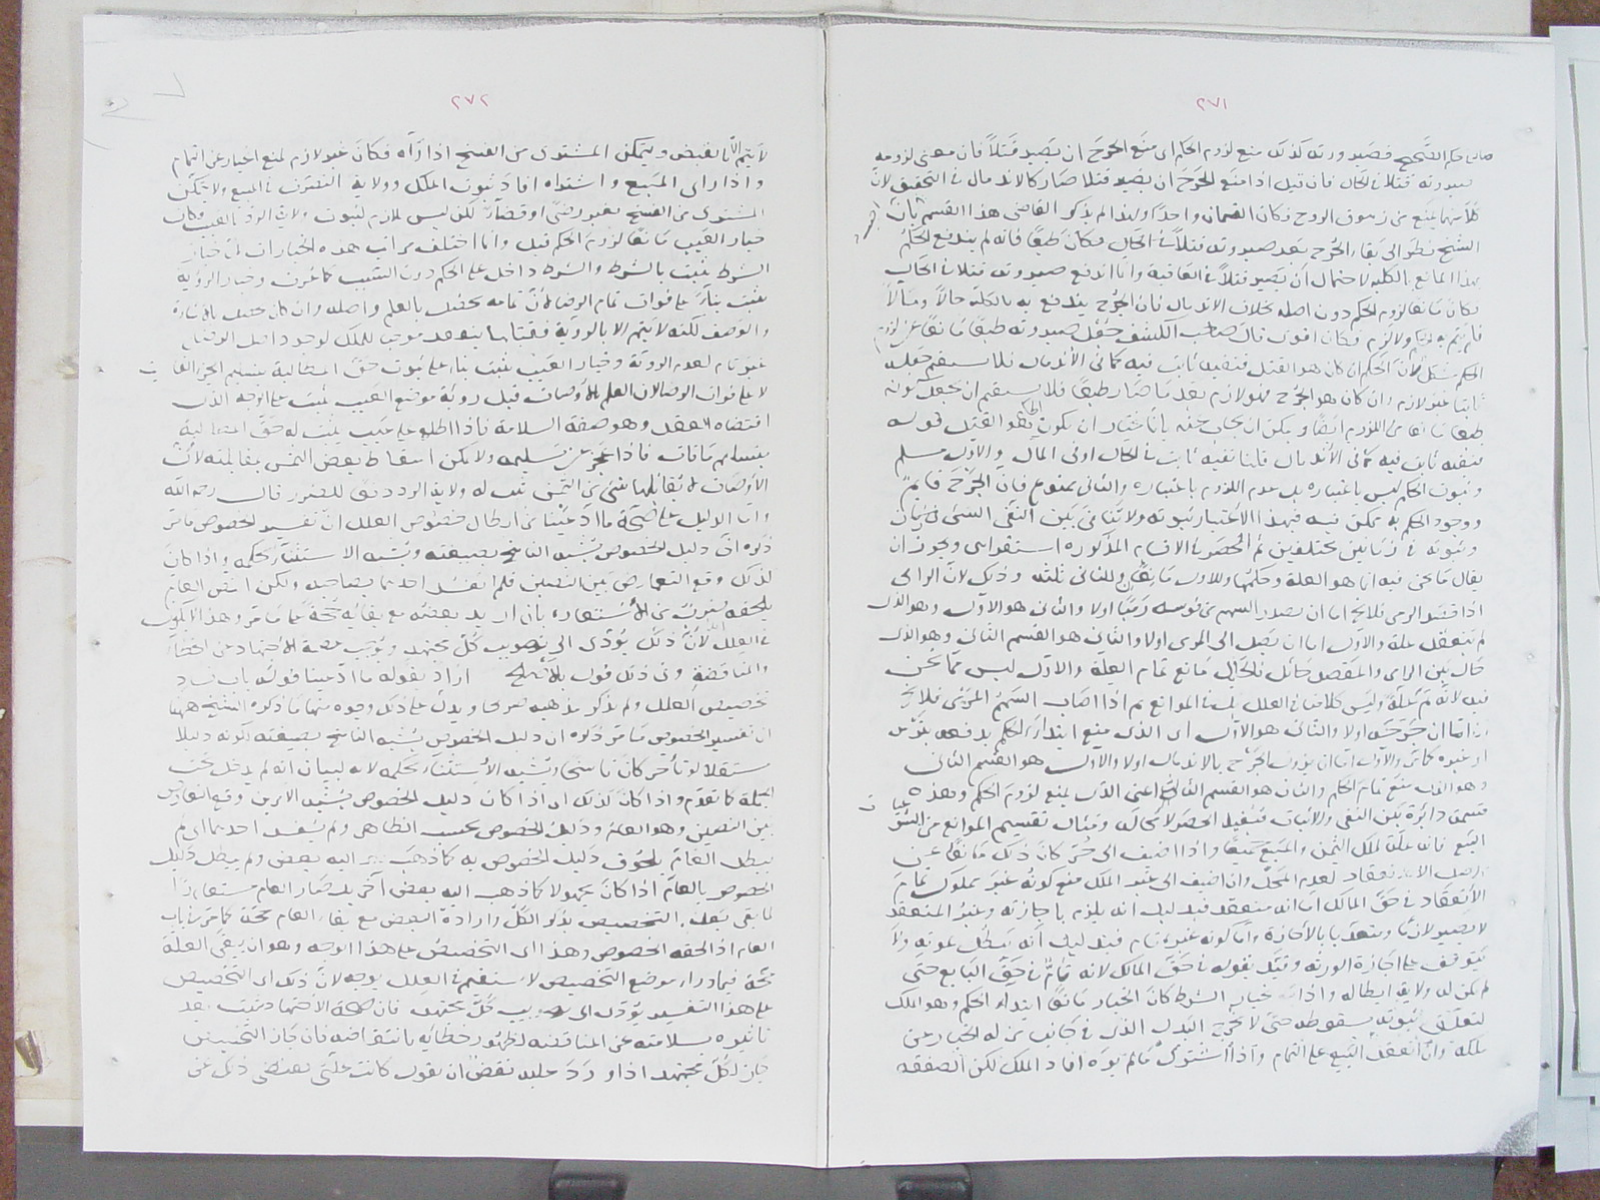 ٢٧١
حكم الصحيح فصيرورته كذلك منع لزوم الحكم اى منع الجرح ان يصير قتلا فان معنى لزومه
صيرورته قتلا فى الحال فان قيل اذا منع الجرح ان يصير قتلا صار كالاندمال فى التحقيق لان
كلا منهما يمنع من زهوق الروح فكان القسمان واحدا ولهذا لم يذكر القاضى هذا القسم
الشيخ نظر الى بقاء الجرح بعد صيرورته قتلا فى الحال فكان طبعا فانه لم يندفع الحكم
بهذا المانع بالكلية لاحتمال ان يصير قتلا فى العاقبة وانما اندفع صيرورته قتلا فى الحال
فكان مانعا لزوم الحكم دون اصله بخلاف الاندمال فان الجرح يندفع به بالكلية حالا ومآلا
فلم يتم به الحكم ولا لزم فكان اقوى قال صاحب الكشف جعل صيرورته طبعا مانعا عن لزوم
الحكم مشكل لان الحكم ان كان هو القتل فنفيه ثابت فيه كما فى الاندمال فلا يستقيم جعله
ثابتا غير لازم وان كان هو الجرح فهو لازم بعد ما صار طبعا فلا يستقيم ان يجعل كونه
طبعا مانعا من اللزوم ايضا ويمكن ان يجاب عنه بانا نختار ان يكون الحكم هو القتل قوله
فنفيه ثابت فيه كما فى الاندمال قلنا نفيه ثابت فى الحال او فى المآل والاول مسلم
وثبوت الحكم ليس باعتباره بل عدم اللزوم باعتباره والثانى ممنوع فان الجرح قائم
ووجود الحكم به ممكن فيه فبهذا الاعتبار ثبوته ولا تنافى بين النفى الشئ فى زمان
وثبوته فى زمانين مختلفين ثم الحصر فى الاقسام المذكورة استقرائى ويجوز ان
يقال ما نحن فيه انما هو العلة وحكمها وللاول مانعان وللثانى ثلثة وذلك لان الرامى
اذا قصد الرمى فلا يخ اما ان يصدر السهم من قوسه رميا اولا والثانى هو الاول وهو الذى
لم ينعقد علة والاول اما ان يصل الى المرمى اولا والثانى هو القسم الثانى وهو الذى
حال بين الرامى والمقصد حائل فالحائل مانع تمام العلة والاول ليس مما نحن
فيه لانه تم علة وليس كلامنا فى العلل بل فى الموانع ثم اذا اصاب السهم المرمى فلا يخ
اما ان جرحه اولا والثانى هو الاول اى الذى منع ابتداء الحكم بدفعه بترس
او غيره كما مر والاول اما ان يزول الجرح بالاندمال اولا والاول هو القسم الثانى
وهو الذى منع تمام الحكم والثانى هو القسم الثالث اعنى الذى يمنع لزوم الحكم وهذه
قسمة دائرة بين النفى والاثبات فيفيد الحصر لا محالة ومثال تقسيم الموانع من
البيع فانه علة لملك الثمن والمبيع جميعا واذا اضيف الى حر كان ذلك مانعا عن
اصل الانعقاد لعدم المحل وان اضيف الى غير الملك منع كونه غير مملوك تمام
الانعقاد فى حق المالك اما انه منعقد فبدليل انه يلزم باجازته وغير المنعقد
لا يصير لازما ومنعقدا بالاجازة واما كونه غير تام فبدليل انه يبطل بموته ولا
يتوقف على اجازة الورثة وقيد بقوله فى حق المالك لانه تام فى حق البايع حتى
لم يكن له ولاية ابطاله واذا خيار الشرط كان الخيار مانعا ابتداء الحكم وهو الملك
لتعلق ثبوته بسقوطه حتى لا يخرج البدل الذى فى جانب من له الخيار عن
ملكه وان انعقد البيع على التمام واذا اشترى ما لم يره افاد الملك لكن الصفقة
٢٧٢
لا يتم الا بالقبض ويتمكن المشترى من الفسخ اذا رآه فكان غير لازم لمنع الخيار عن التمام
واذا راى المبيع واشتراه افاد ثبوت الملك وولاية التصرف فى المبيع ولا يتمكن
المشترى من الفسخ بغير رضى او قضاء لكن ليس بلازم لثبوت ولاية الرد بالعيب فكان
خيار العيب مانعا لزوم الحكم قيل وانما اختلف مراتب هذه الخيارات لان خيار
الشرط يثبت بالشرط والشرط داخل على الحكم دون السبب كما عرف وخيار الرؤية
يثبت بناء على فوات تمام الرضا لان تمامه يحصل بالعلم واصله وان كان حصل بالاشارة
والوصف لكنه لا يتم الا بالرؤية فقبلها ينعقد موجبا للملك لوجود اصل الرضى
غير تام لعدم الرؤية وخيار العيب يثبت بناء على ثبوت حق المطالبة بتسليم الجزء الفائت
لا على فوات الرضا لان العلم بالاوصاف قبل رؤية موضع العيب ثبت على الوجه الذى
اقتضاه العقد وهو صفة السلامة فاذا اطلع على عيب يثبت له حق المطالبة
بتسليم ما فات فاذا عجز عن تسليمه ولا يمكن اسقاط بعض الثمن بمقابلته لان
الاوصاف لا يقابلها شئ من الثمن ثبت له ولاية الرد دفعا للضرر قال رحمه الله
واما الدليل على صحة ما ادعينا من ابطال خصوص العلل ان تفسير الخصوص ما مر
ذكره ان دليل الخصوص يشبه الناسخ بصيغته ويشبه الاستثناء بحكمه واذا كان
كذلك وقع التعارض بين النصين فلم يفسد احدهما بصاحبه ولكن النص العام
يلحقه ضرب من الاستعارة بان اريد بعضه مع بقائه حجة على ما مر وهذا لا يكون
فى العلل لان ذلك يؤدى الى تصويب كل مجتهد ويوجب عصمة الاجتهاد عن الخطاء
والمناقضة وفى ذلك قول بالاصلح اراد بقوله ما ادعينا قوله باب فساد
تخصيص العلل ولم يذكر مذهبه صريحا ويدل على ذلك وجوه منها ما ذكره الشيخ ههنا
ان تفسير الخصوص ما مر ذكره ان دليل الخصوص يشبه الناسخ بصيغته لكونه دليلا
مستقلا لو تأخر كان ناسخا ويشبه الاستثناء بحكمه لانه لبيان انه لم يدخل تحت
الجملة كما تقدم واذا كان كذلك اى اذا كان دليل الخصوص يشبه الامرين وقع التعارض
بين النصين وهو العام ودليل الخصوص بحسب الظاهر ولم يفسد احدهما اى لم
يبطل العام بلحوق دليل الخصوص به كما ذهب اليه بعض ولم يبطل دليل
الخصوص بالعام اذا كان مجهولا كما ذهب اليه بعض آخر بل صار العام مستعارا
لما بقى بعد التخصيص بذكر الكل وارادة البعض مع بقاء العام حجة كما مر فى باب
العام اذا لحقه الخصوص وهذا اى التخصيص على هذا الوجه وهو ان يبقى العلة
حجة فيما وراء موضع التخصيص لا يستقيم فى العلل بوجه لان ذلك اى التخصيص
على هذا التفسير يؤدى الى تصويب كل مجتهد فان صحة الاجتهاد تثبت بعد
تاثيره بسلامته عن المناقضة لظهور خطائه بانتقاضه فان جاز التخصيص
جاز لكل مجتهد اذا ورد عليه نقض ان يقول كانت علتى تقتضى ذلك عن